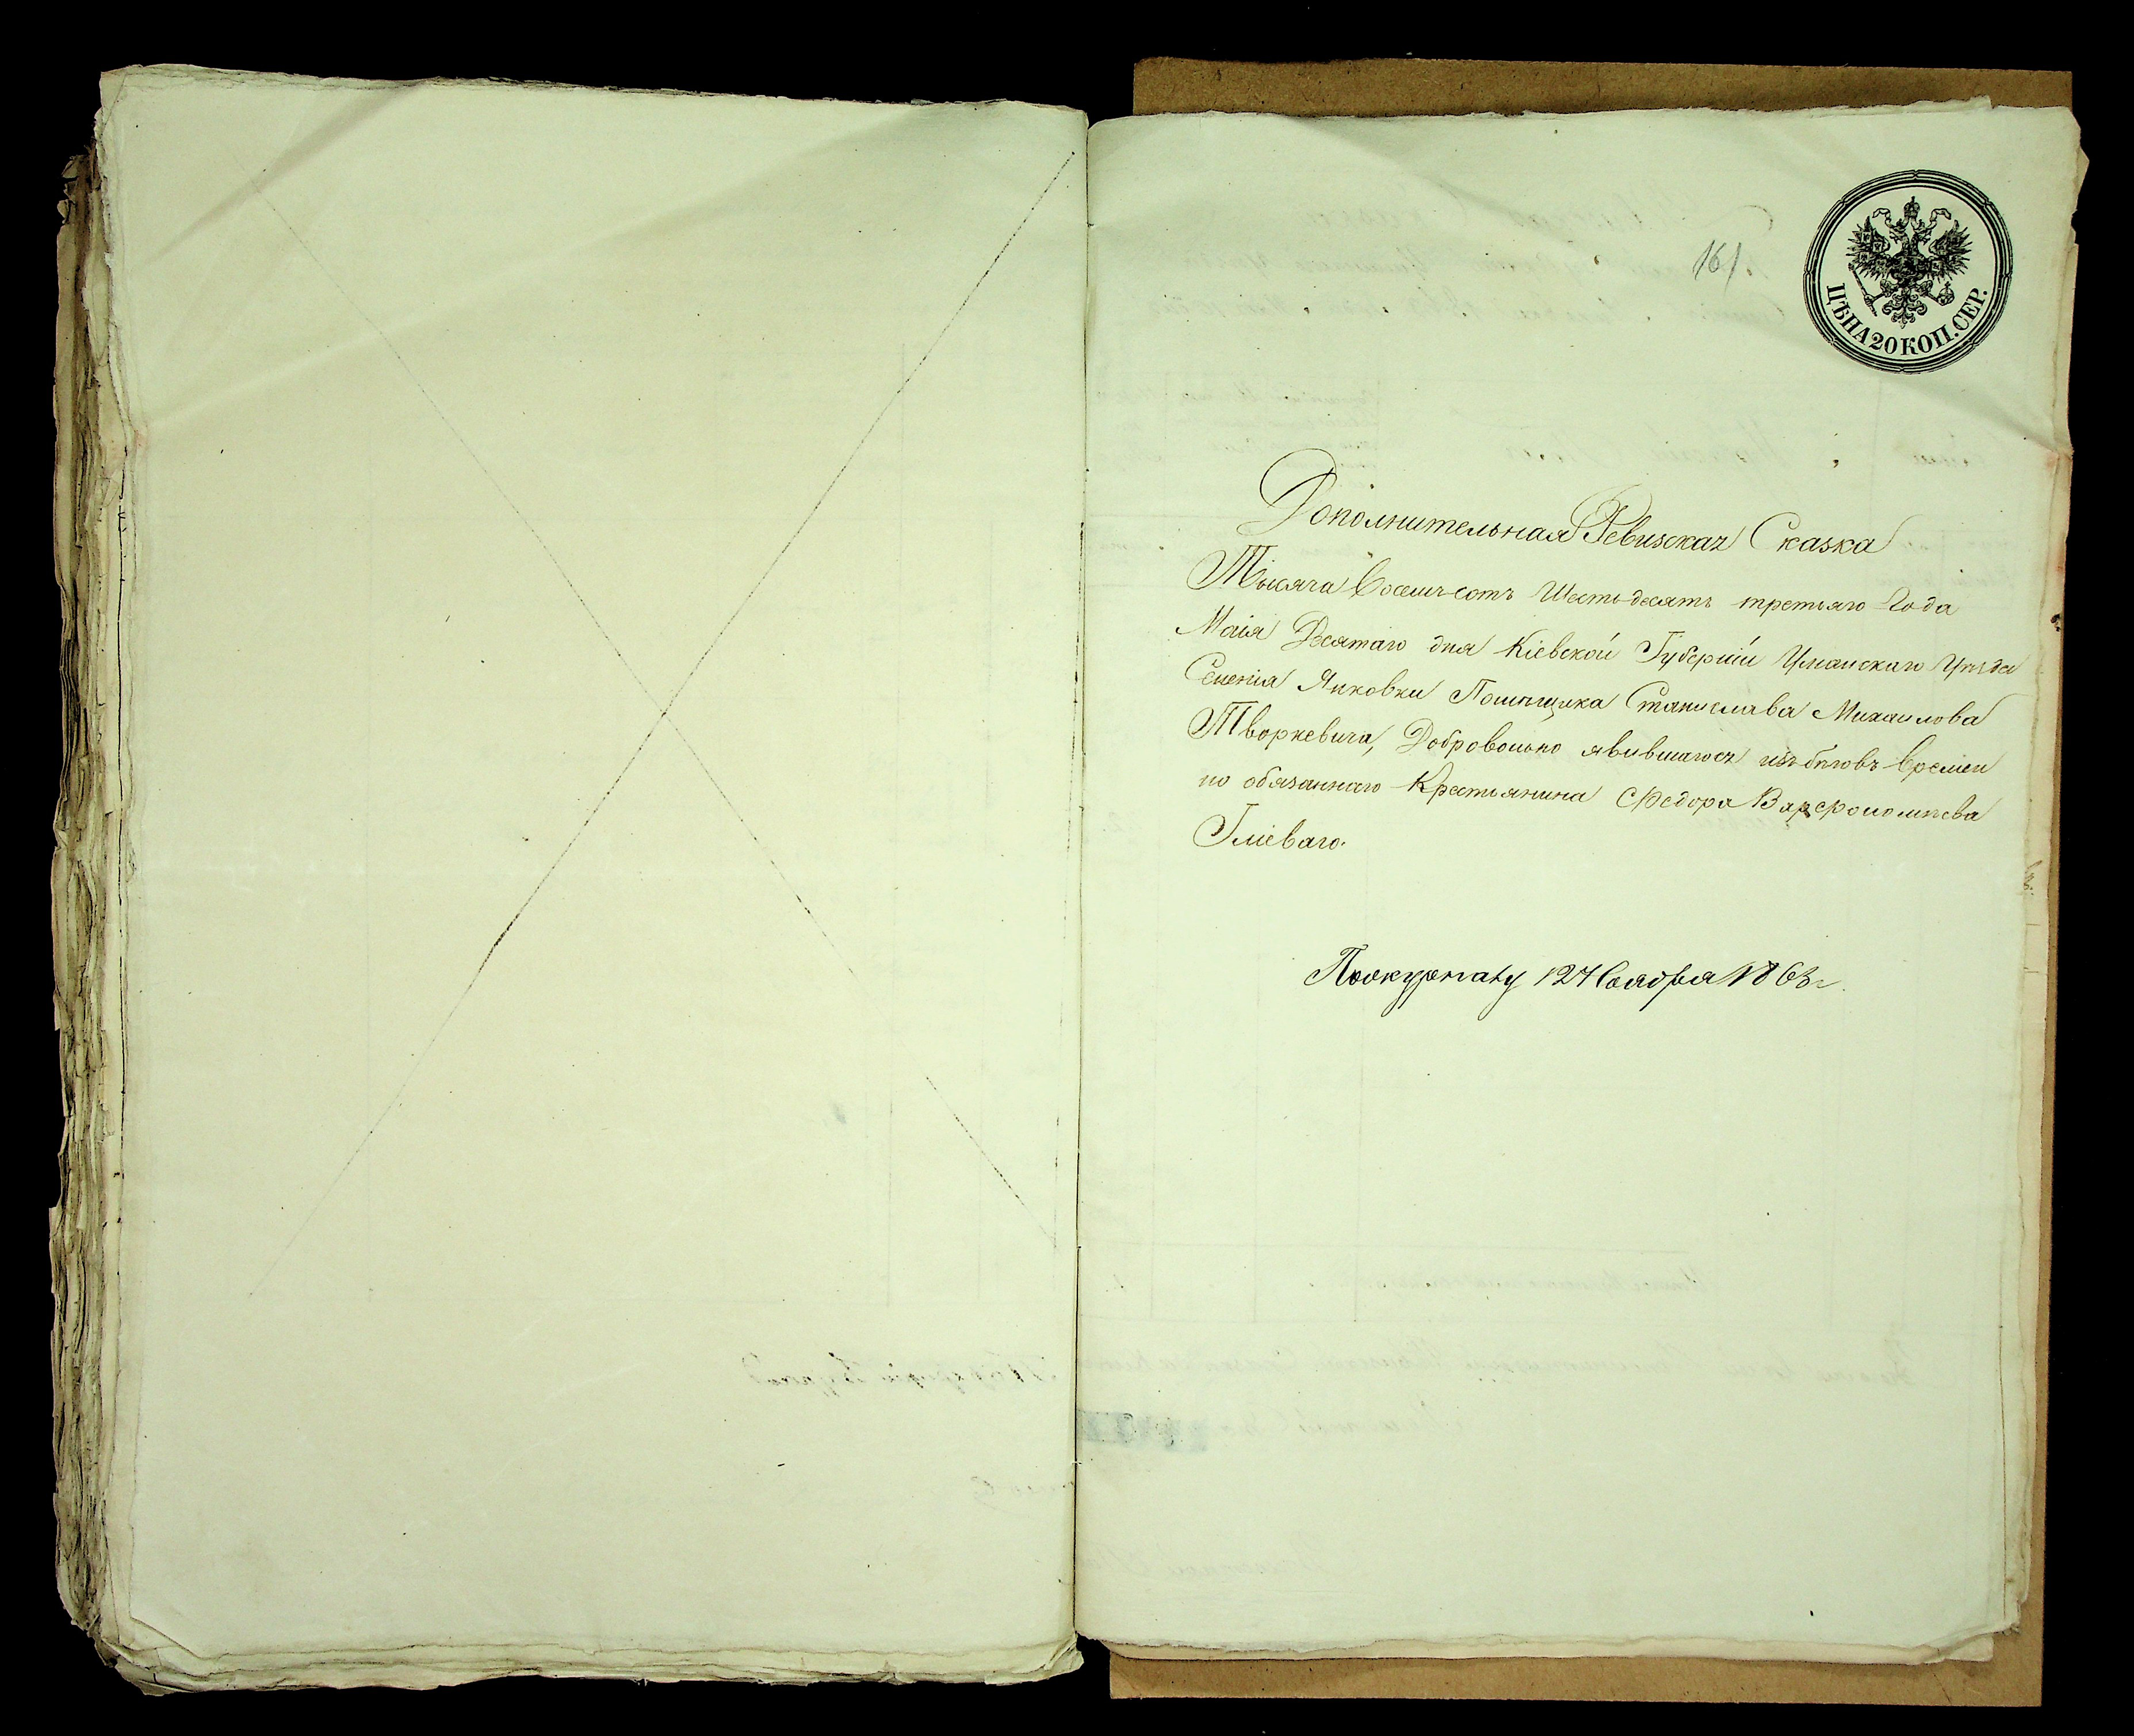 161
ЦѢНА 20 КОП. СЕР.
Дополнительная Ревизская Сказка
Тысяча восемьсотъ Шестьдесятъ третьяго Года
Маія Десятаго дня Кіевской Губерніи Уманскаго Уѣзда
Селенія Янковки Помѣщика Станислава Михаилова
Творкевича, Добровольно явившагося изъ бѣговъ времен
но обязаннаго Крестьянина Федора Варфоломѣева
Гліеваго.
12 Ноября 1863 г.